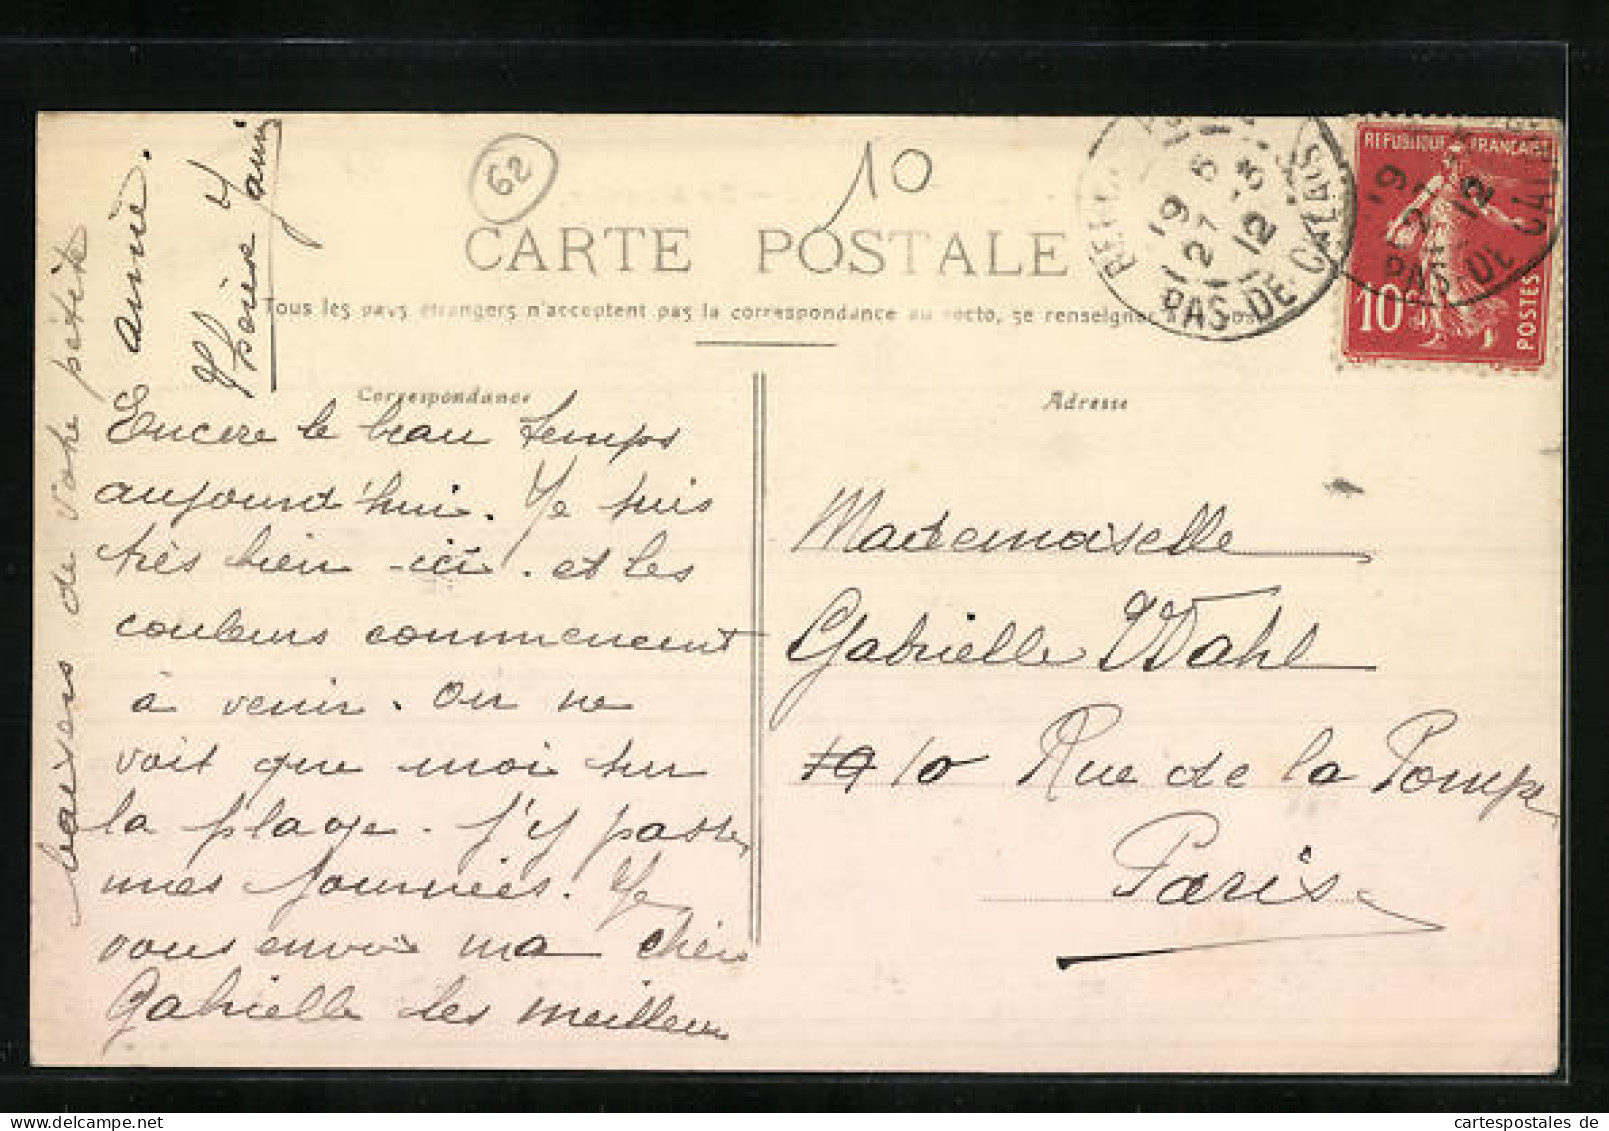 62
10
CARTE POSTALE
Tous les pays étrangers n'acceptent pas la correspondance au recto, se renseigner à la poste
Correspondance
Adresse
Encore le beau temps
aujourd'hui. Je suis
très bien ici. et les
couleurs commencent
à venir. On ne
voit que moi sur
la plage. J'y passe
mes journées. Je
vous envoie ma chère
Gabrielle les meilleurs
baisers de votre petite
amie.
Mademoiselle
Gabrielle Wahl
19 10 Rue de la Pompe
Paris
19 5
27 - 8
12
PAS-DE-CALAIS
REPUBLIQUE FRANÇAISE
10
POSTES
19
27
12
PAS-DE-CALAIS
cartespostales de